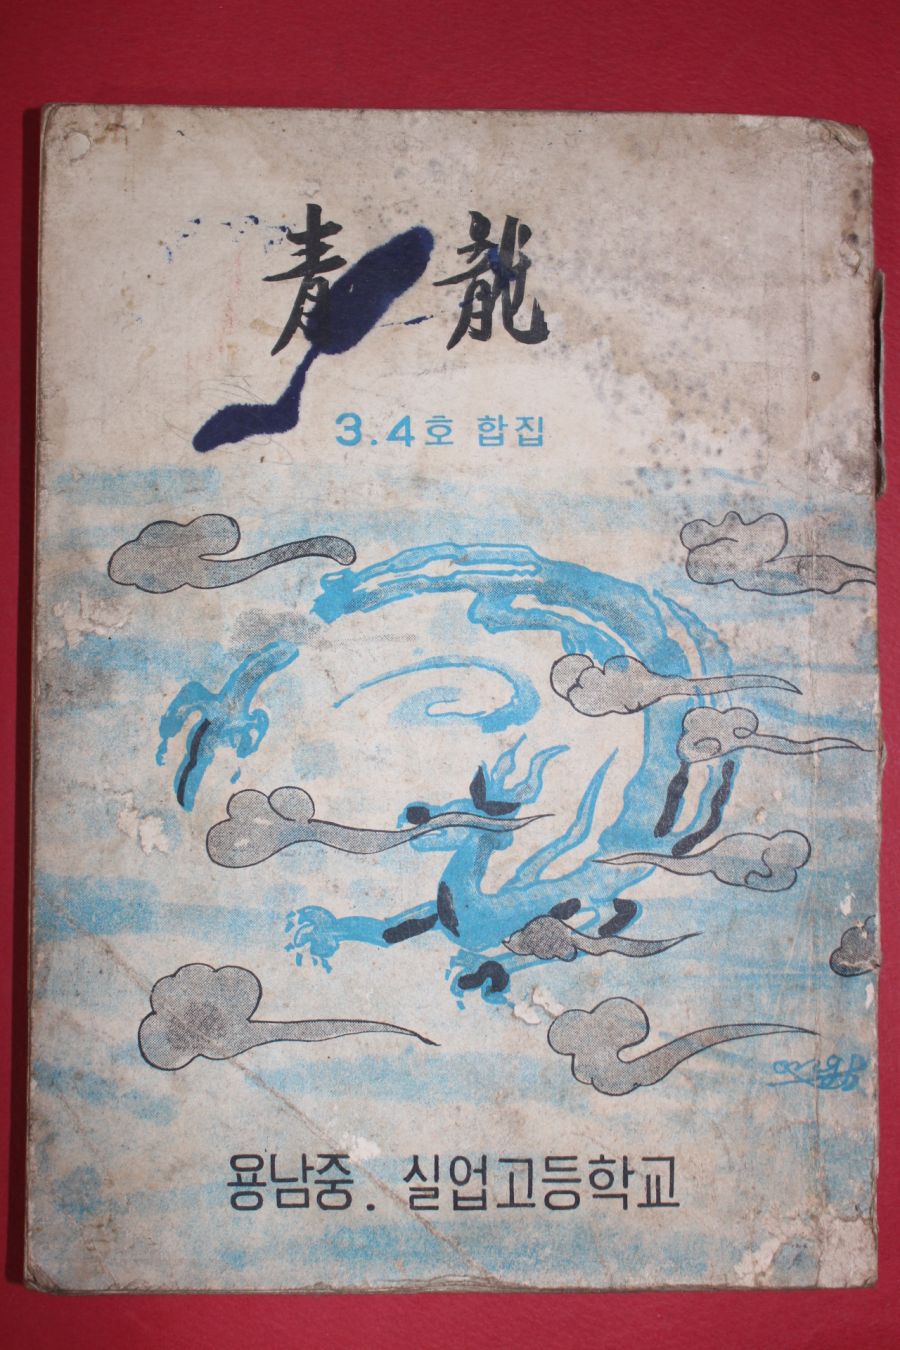 青龍
3.4호 합집
용남중. 실업고등학교